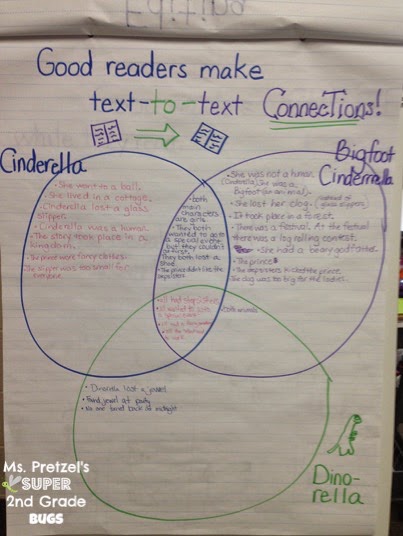 Good readers make
text-to-text Connections!
Cinderella
• She went to a ball.
• She lived in a cottage.
• Cinderella lost a glass
slipper.
• Cinderella was a human.
• The story took place in a
kingdom.
The prince wore fancy clothes.
The slipper was too small for
everyone.
• both
main
characters
are girls
• They both
wanted to go to
a special event
but they couldn't
at first.
They both lost a
shoe.
• The prince didn't like the
stepsisters
Bigfoot
Cinderrrella
• She was not a human.
(Cinderella) She was a
Bigfoot (an animal).
• She lost her clog. (instead of
glass slippers)
• It took place in a forest.
• There was a festival. At the festival
there was a log rolling contest.
• She had a beary godfather.
• The prince
• The stepsisters
the prince
The clog was too big for the ladies.
• all had stepsisters
• all wanted to
• both animals
• Dinorella lost a jewel
• Found jewel at party
• No one turned back at midnight
Dino-
rella
Ms. Pretzel's
SUPER
2nd Grade
BUGS